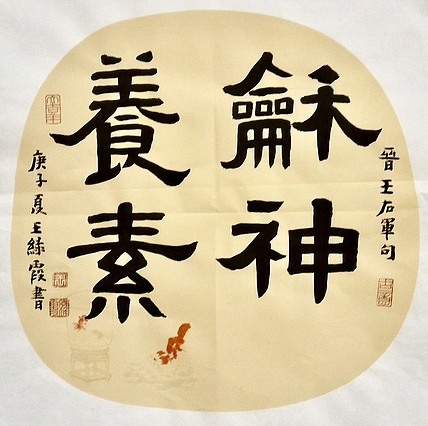 晉王右軍句
龢神
養素
庚子夏王緑霞書